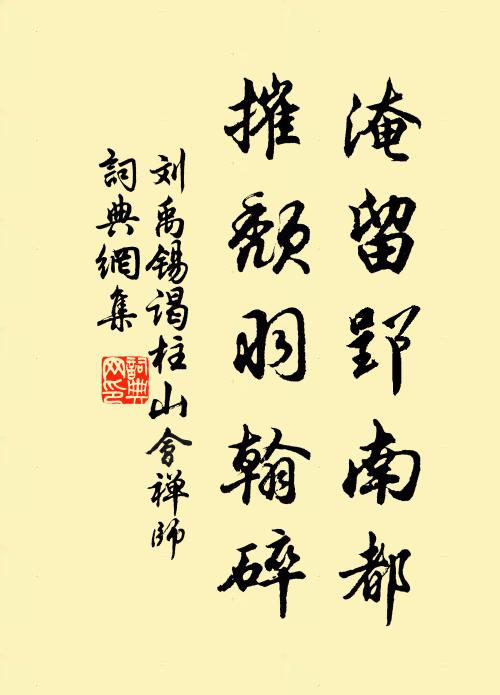 淹留郢南都
摧頹羽翰碎
刘禹锡谒柱山會禅师
詞典網集
詞典網印